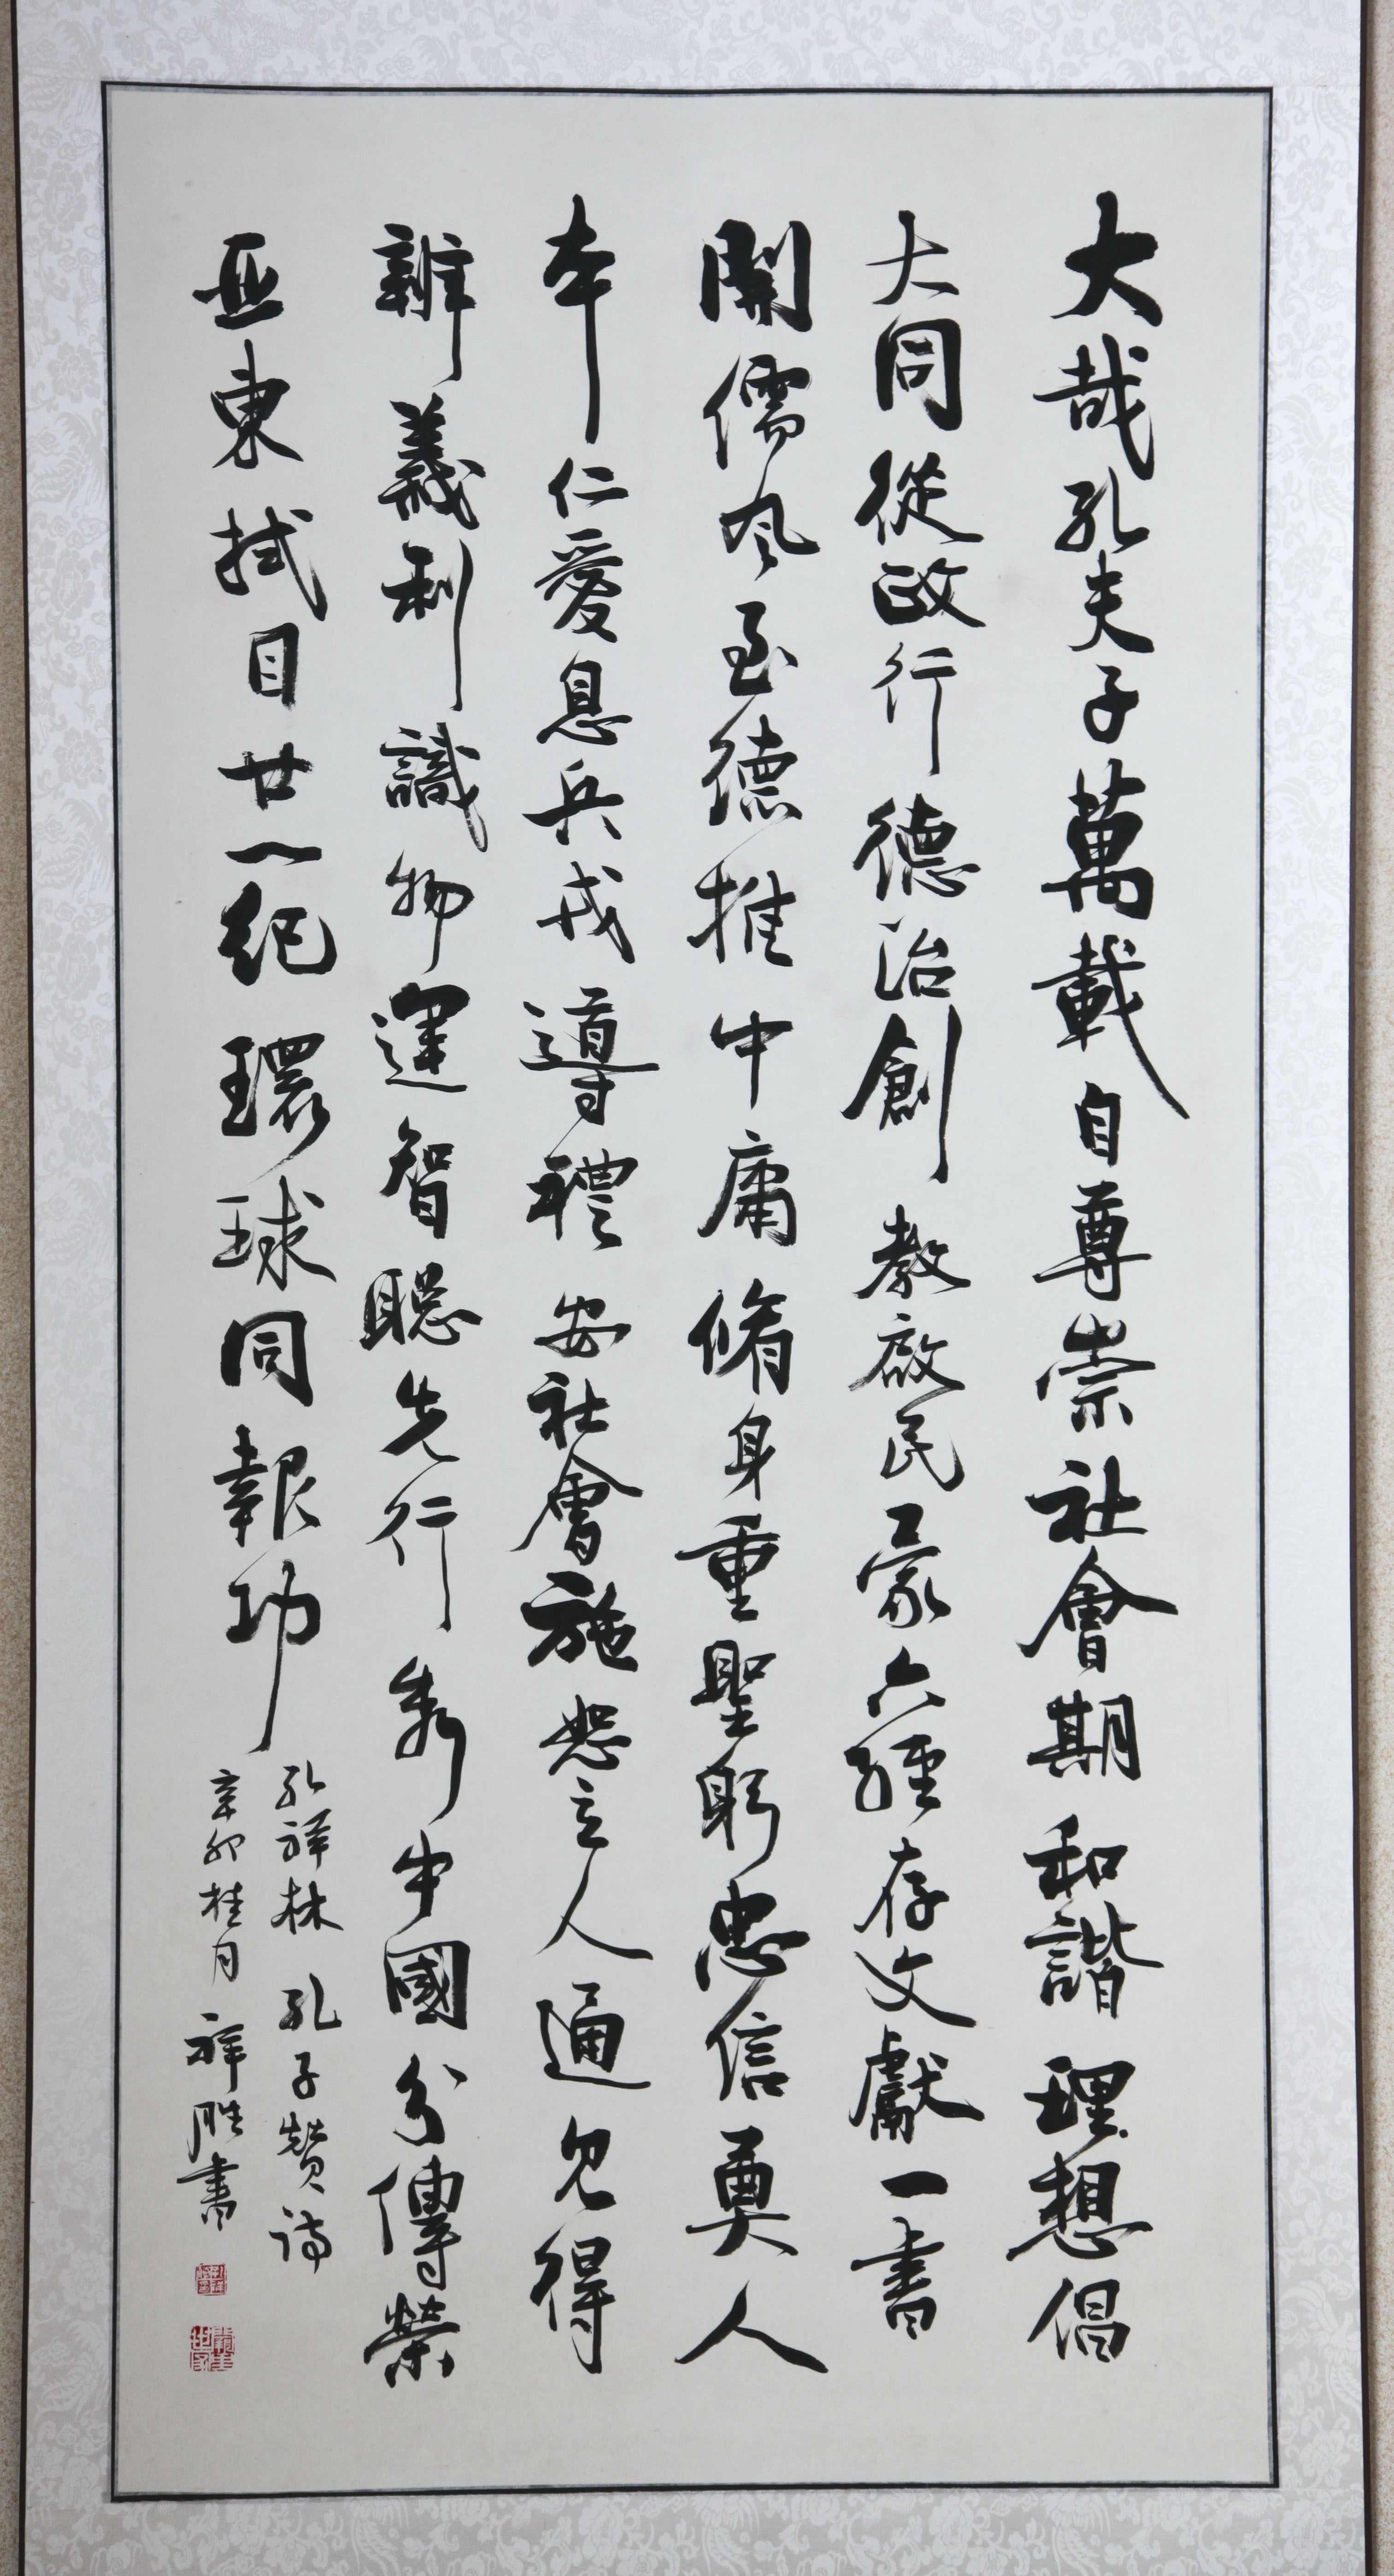 大哉孔夫子萬載自尊崇社會期和諧理想倡
大同從政行德治創教啟民蒙六經存文獻一書
開儒风至德推中庸脩身重聖躬忠信奠人
本仁愛息兵戎導禮安社會施恕立人通見得
辨義利識物運智聰先行秀中國分傳榮
亚東拭目廿一紀環球同報功
孔祥林 孔子贊诗
辛卯桂月 祥胜書